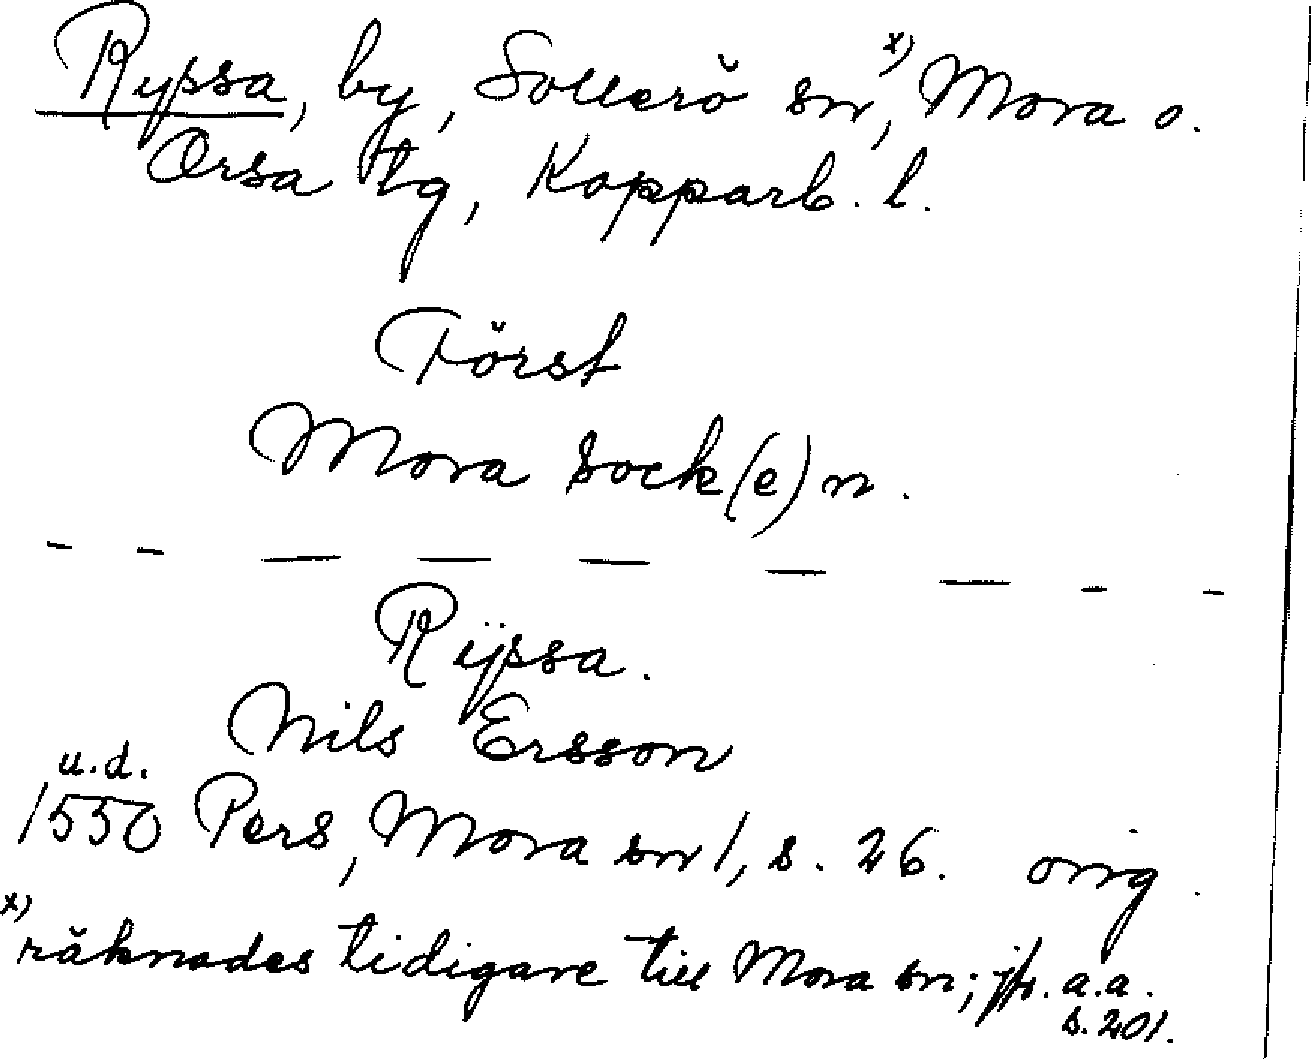 Rypsa, by, Sollerö sn, x) Mora o.
Orsa tg, Kopparb. l.
Först
Mora sock(e)n.
– – – – – – – – –
Rÿpsa.
Nils Ersson
u.d.
1550 Pers, Mora sn 1, s. 26. orig.
x) räknades tidigare till Mora sn; jfr. a.a.
s. 201.